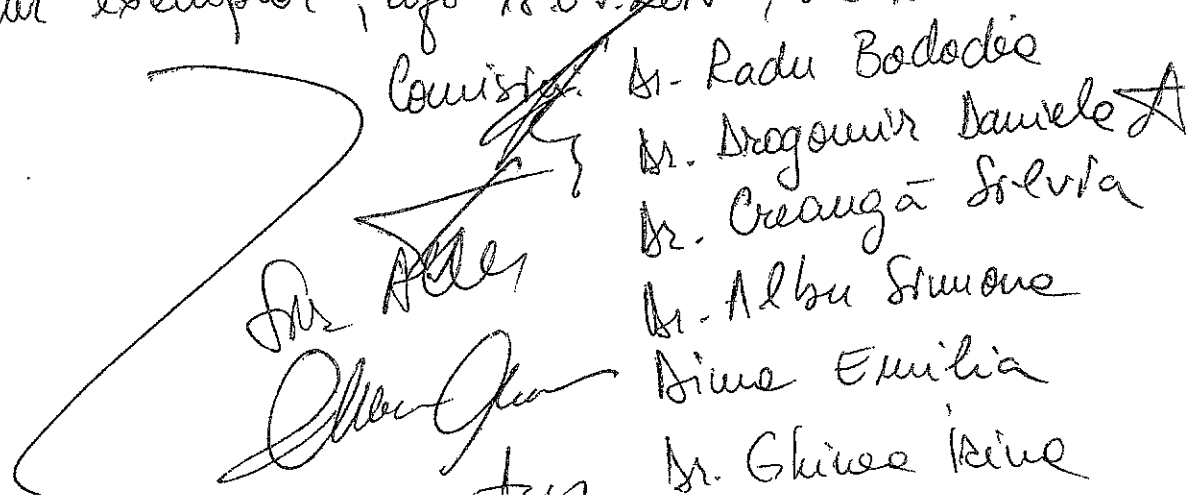 exemplar,
Comisia: Dr. Radu Bododea
Dr. Dragomir Daniela
Dr. Creangă Silvia
Dr. Albu Simona
Dima Emilia
Dr. Ghinea Irina